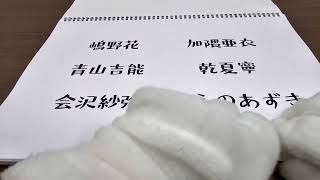 嶋野花 加隈亜衣
青山吉能 乾夏寧
会沢紗 のあずき